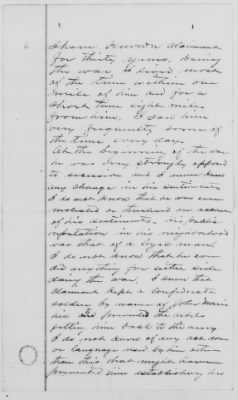 I have known Claimant
for thirty years. During
the war I lived most
of the time within one
mile of him and for a
short time eight miles
from him. I saw him
very frequently some of
the time every day.
At the beginning of the war
he was very strongly opposed
to secession and I never knew
any change in his sentiments
I do not know that he was ever
molested or threatened on account
of his sentiments. His public
reputation in his neighborhood
was that of a loyal man.
I do not know that he ever
did anything for either side
during the war. I know that
claimant kept a Confederate
soldier by name of John
him and prevented the rebels
getting him back to the army
I do not know of any act done
or language used by him other
than this that might have
prevented him establishing his